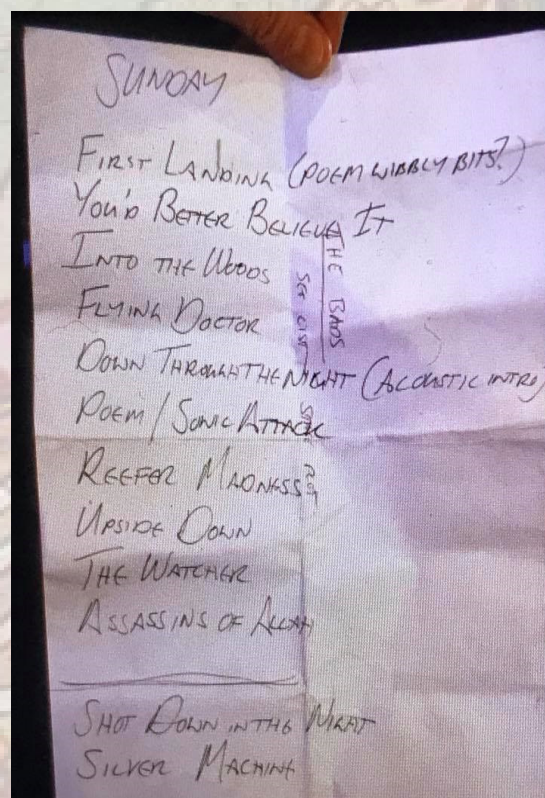 SUNDAY
FIRST LANDING (POEM WIBBLY BITS?)
YOU'D BETTER BELIEVE IT
INTO THE WOODS
FLYING DOCTOR
DOWN THROUGH THE NIGHT (ACOUSTIC INTRO)
POEM / SONIC ATTACK
REEFER MADNESS
UPSIDE DOWN
THE WATCHER
ASSASSINS OF ALLAH
SHOT DOWN IN THE NIGHT
SILVER MACHINE
THE BADS
SET LIST